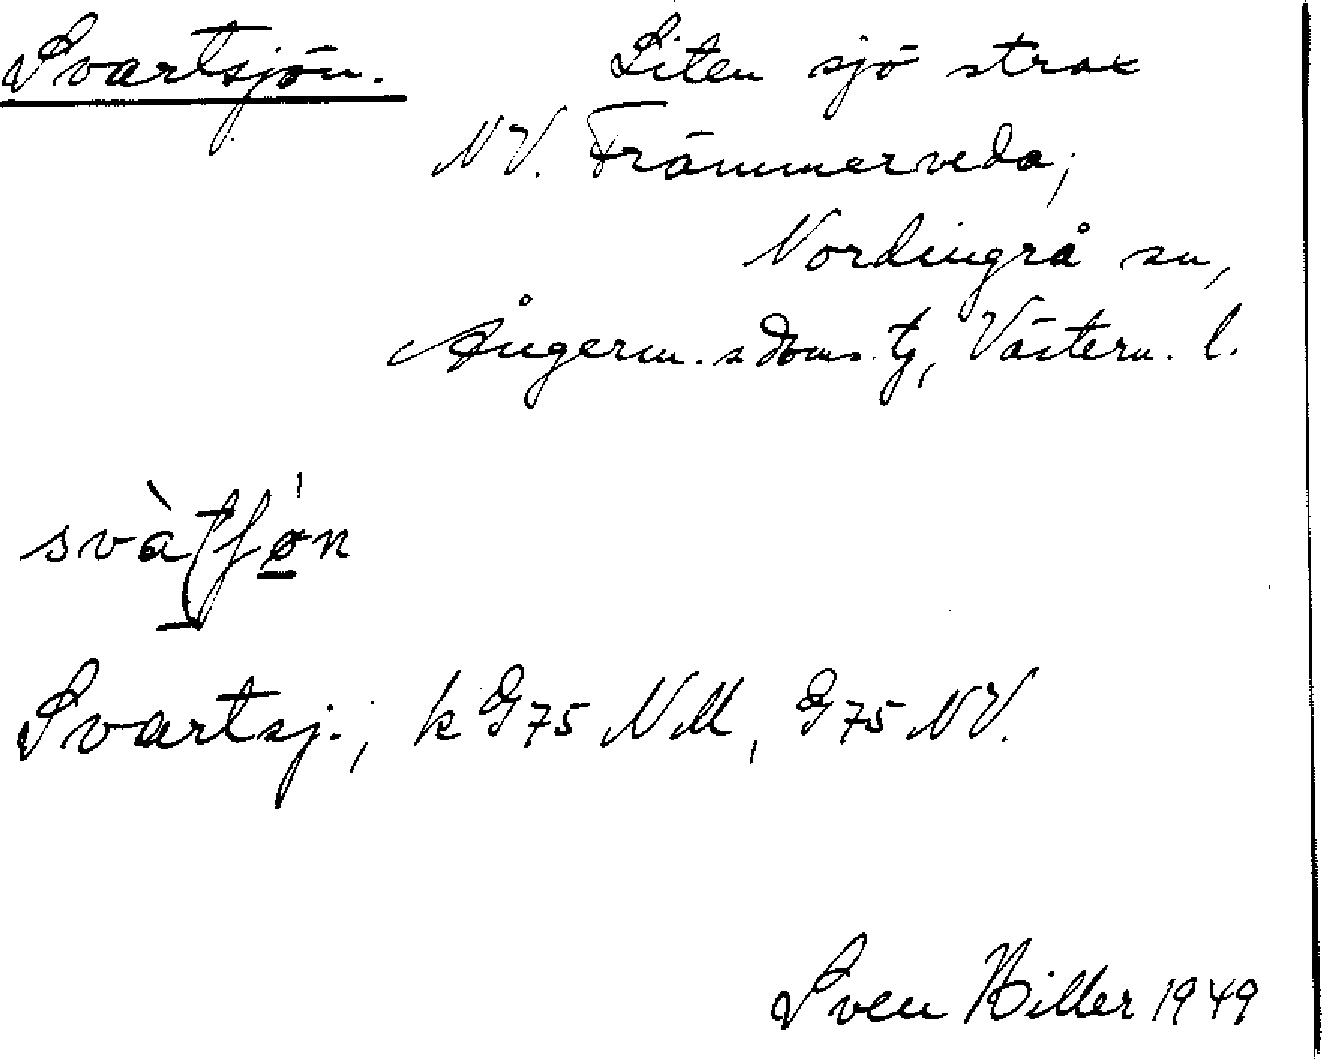 Svartsjön. Liten sjö strax
NV. Främmerveda;
Nordingrå sn,
Ångerm.s doms. tg, Västern. l.
Svartsj., k G75 NM, G75 NV.
Sven Hiller 1949